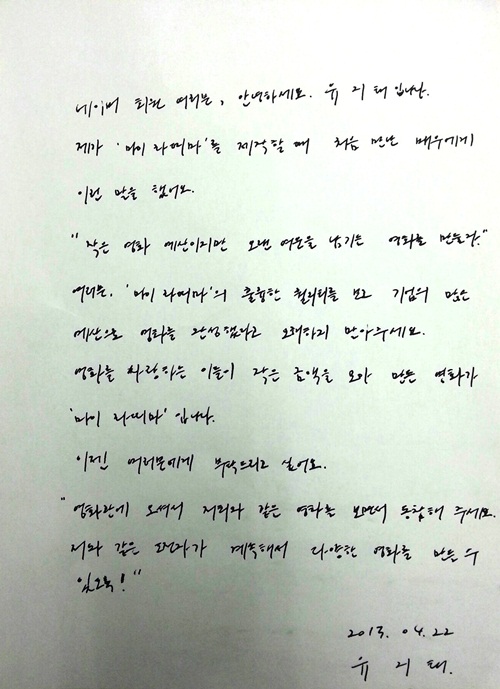 네이버 회원 여러분, 안녕하세요. 유지태입니다.
제가 '마이 라띠마'를 제작할 때 처음 만난 배우에게
이런 말을 했어요.
"작은 영화 예산이지만 오랜 여운을 남기는 영화를 만들자."
여러분. '마이 라띠마'의 훌륭한 퀄리티를 보고 기업의 많은
예산으로 영화를 완성했다고 오해하지 말아주세요.
영화를 사랑하는 이들이 작은 금액을 모아 만든 영화가
'마이 라띠마'입니다.
이젠 여러분에게 부탁드리고 싶어요.
"영화관에 오셔서 저희와 같은 영화를 보면서 동참해 주세요.
저와 같은 감독자가 계속해서 다양한 영화를 만들 수
있도록!"
2013. 04. 22
유 지 태.